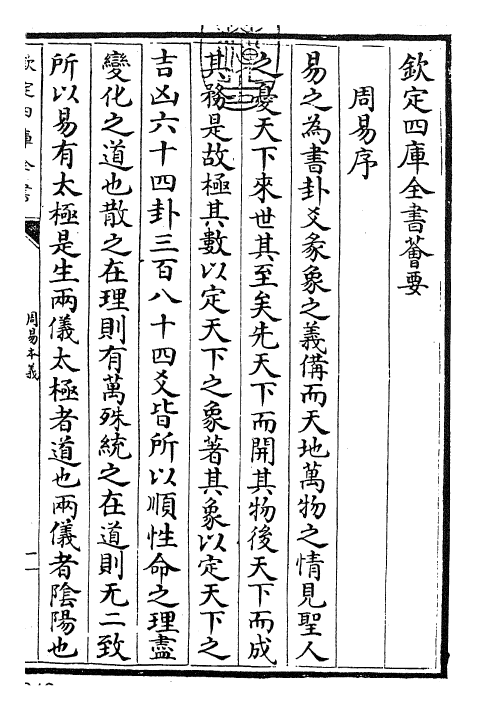 欽定四庫全書薈要
周易序
易之為書卦爻彖象之義備而天地萬物之情見聖人
之憂天下來世其至矣先天下而開其物後天下而成
其務是故極其數以定天下之象著其象以定天下之
吉凶六十四卦三百八十四爻皆所以順性命之理盡
變化之道也散之在理則有萬殊統之在道則无二致
所以易有太極是生兩儀太極者道也兩儀者陰陽也
欽定四庫全書
周易本義